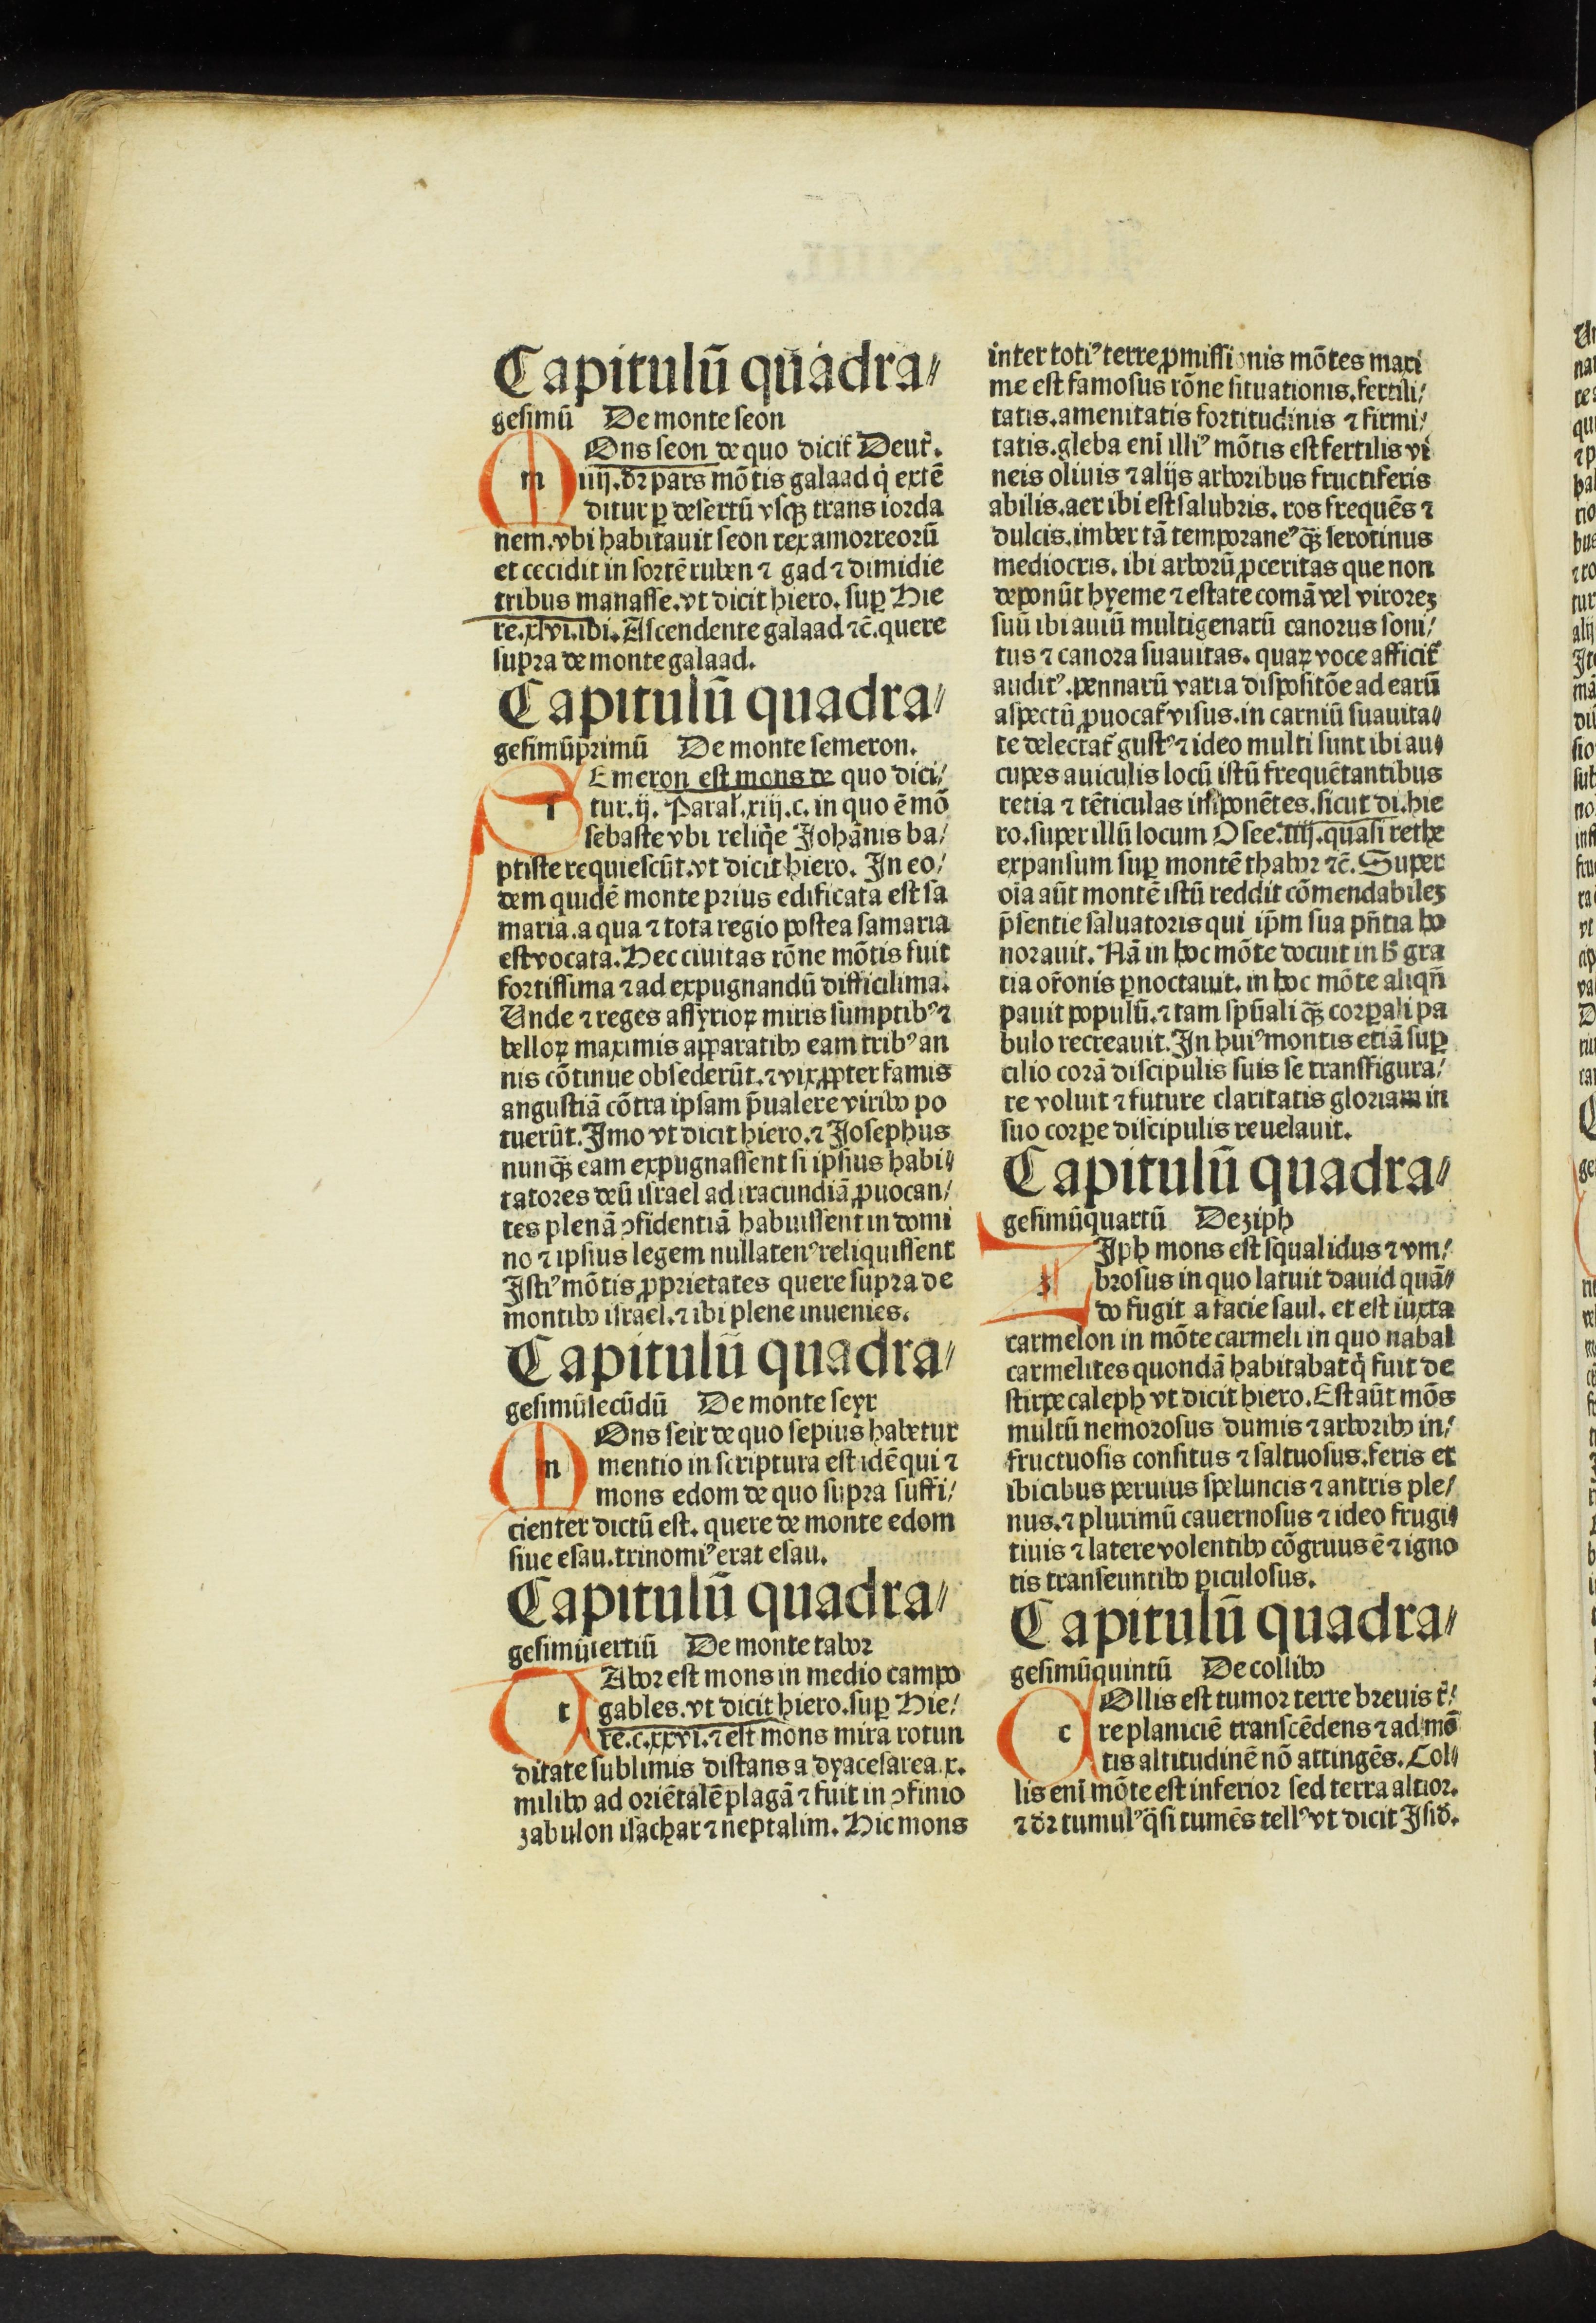 Capitulū quadra⸗
gesimū De monte seon
mOns seon de quo dicit̄ Deut̄.
iiij. dr̄ pars mōtis galaad q̇ extē
ditur ꝑ desertū vsqꝫ trans iorda
nem. vbi habitauit seon rex amorreorū
et cecidit in sortē ruben ⁊ gad ⁊ dimidie
tribus manasse. vt dicit hiero. suꝑ Hie
re. xlvi. ibi. Ascendente galaad ⁊c̄. quere
supra de monte galaad.
Capitulū quadra⸗
gesimūprimū De monte semeron.
Emeron est mons de quo dici⸗
tur. ij. Paral̄. xiij. c. in quo ē mō
sebaste vbi reliq̄e Johānis ba⸗
ptiste requiescūt. vt dicit hiero. In eo⸗
dem quidē monte prius edificata est sa
maria. a qua ⁊ tota regio postea samaria
est vocata. Hec ciuitas rōne mōtis fuit
fortissima ⁊ ad expugnandū difficilima.
Unde ⁊ reges assyrioꝝ miris sumptibꝰ ⁊
belloꝝ maximis apparatibꝰ eam tribꝰ an
nis cōtinue obsederūt. ⁊ vix ꝓpter famis
angustiā cōtra ipsam p̄ualere viribꝰ po
tuerūt. Imo vt dicit hiero. ⁊ Josephus
nunqꝫ̄ eam expugnassent si ipsius habi⸗
tatores deū israel ad iracundiā ꝓuocan⸗
tes plenā ꝯfidentiā habuissent in domi
no ⁊ ipsius legem nullatenꝰ reliquissent
Istiꝰ mōtis ꝓprietates quere supra de
montibꝰ israel. ⁊ ibi plene inuenies.
Capitulū quadra⸗
gesimūsecūdū De monte seyr
mOns seir de quo sepius habetur
mentio in scriptura est idē qui ⁊
mons edom de quo supra suffi⸗
cienter dictū est. quere de monte edom
siue esau. trinomiꝰ erat esau.
Capitulū quadra⸗
gesimūtertiū De monte tabor
tAbor est mons in medio campo
gables. vt dicit hiero. suꝑ Hie⸗
re. c. xxvi. ⁊ est mons mira rotun
ditate sublimis distans a dyacesarea. x.
milibꝰ ad oriētalē plagā ⁊ fuit in ꝯfinio
zabulon isachar ⁊ neptalim. Hic mons
inter totiꝰ terre ꝓmissionis mōtes maxi
me est famosus rōne situationis. fertili⸗
tatis. amenitatis fortitudinis ⁊ firmi⸗
tatis. gleba enī illiꝰ mōtis est fertilis vi
neis oliuis ⁊ alijs arboribus fructiferis
abilis. aer ibi est salubris. ros frequēs ⁊
dulcis. imber tā temporaneꝰ qꝫ̄ serotinus
mediocris. ibi arborū ꝓceritas que non
deponūt hyeme ⁊ estate comā vel viroreꝫ
suū ibi auiū multigenarū canorus soni⸗
tus ⁊ canora suauitas. quaꝝ voce afficit̄
auditꝰ. pennarū varia dispositōe ad earū
aspectū ꝓuocat̄ visus. in carniū suauita⸗
te delectat̄ gustꝰ ⁊ ideo multi sunt ibi au⸗
cupes auiculis locū istū frequētantibus
retia ⁊ tēticulas imponētes. sicut di. hie
ro. super illū locum Osee. iiij. quasi rethe
expansum suꝑ montē thabor ⁊c̄. Super
oīa aūt montē istū reddit cōmendabileꝫ
p̄sentie saluatoris qui ip̄m sua pn̄tia ho
norauit. Nā in hoc mōte docuit in hͨ gra
tia or̄onis ꝑnoctauit. in hoc mōte aliqn̄
pauit populū. ⁊ tam spūali qꝫ̄ corꝑali pa
bulo recreauit. In huiꝰ montis etiā suꝑ
cilio corā discipulis suis se transfigura⸗
re voluit ⁊ future claritatis gloriam in
suo corꝑe discipulis reuelauit.
Capitulū quadra⸗
gesimūquartū De ziph
zIph mons est squalidus ⁊ vm⸗
brosus in quo latuit dauid quā⸗
do fugit a facie saul. et est iuxta
carmelon in mōte carmeli in quo nabal
carmelites quondā habitabat q̇ fuit de
stirpe caleph vt dicit hiero. Est aūt mōs
multū nemorosus dumis ⁊ arboribꝰ in⸗
fructuosis consitus ⁊ saltuosus. feris et
ibicibus peruius speluncis ⁊ antris ple⸗
nus. ⁊ plurimū cauernosus ⁊ ideo frugi⸗
tiuis ⁊ latere volentibꝰ cōgruus ē ⁊ igno
tis transeuntibꝰ ꝑiculosus.
Capitulū quadra⸗
gesimūquintū De collibꝰ
cOllis est tumor terre breuis t̄⸗
re planiciē transcēdens ⁊ ad mō
tis altitudinē nō attingēs. Col⸗
lis enī mōte est inferior sed terra altior.
⁊ dr̄ tumulꝰ q̄si tumēs tellꝰ vt dicit Isid̄.